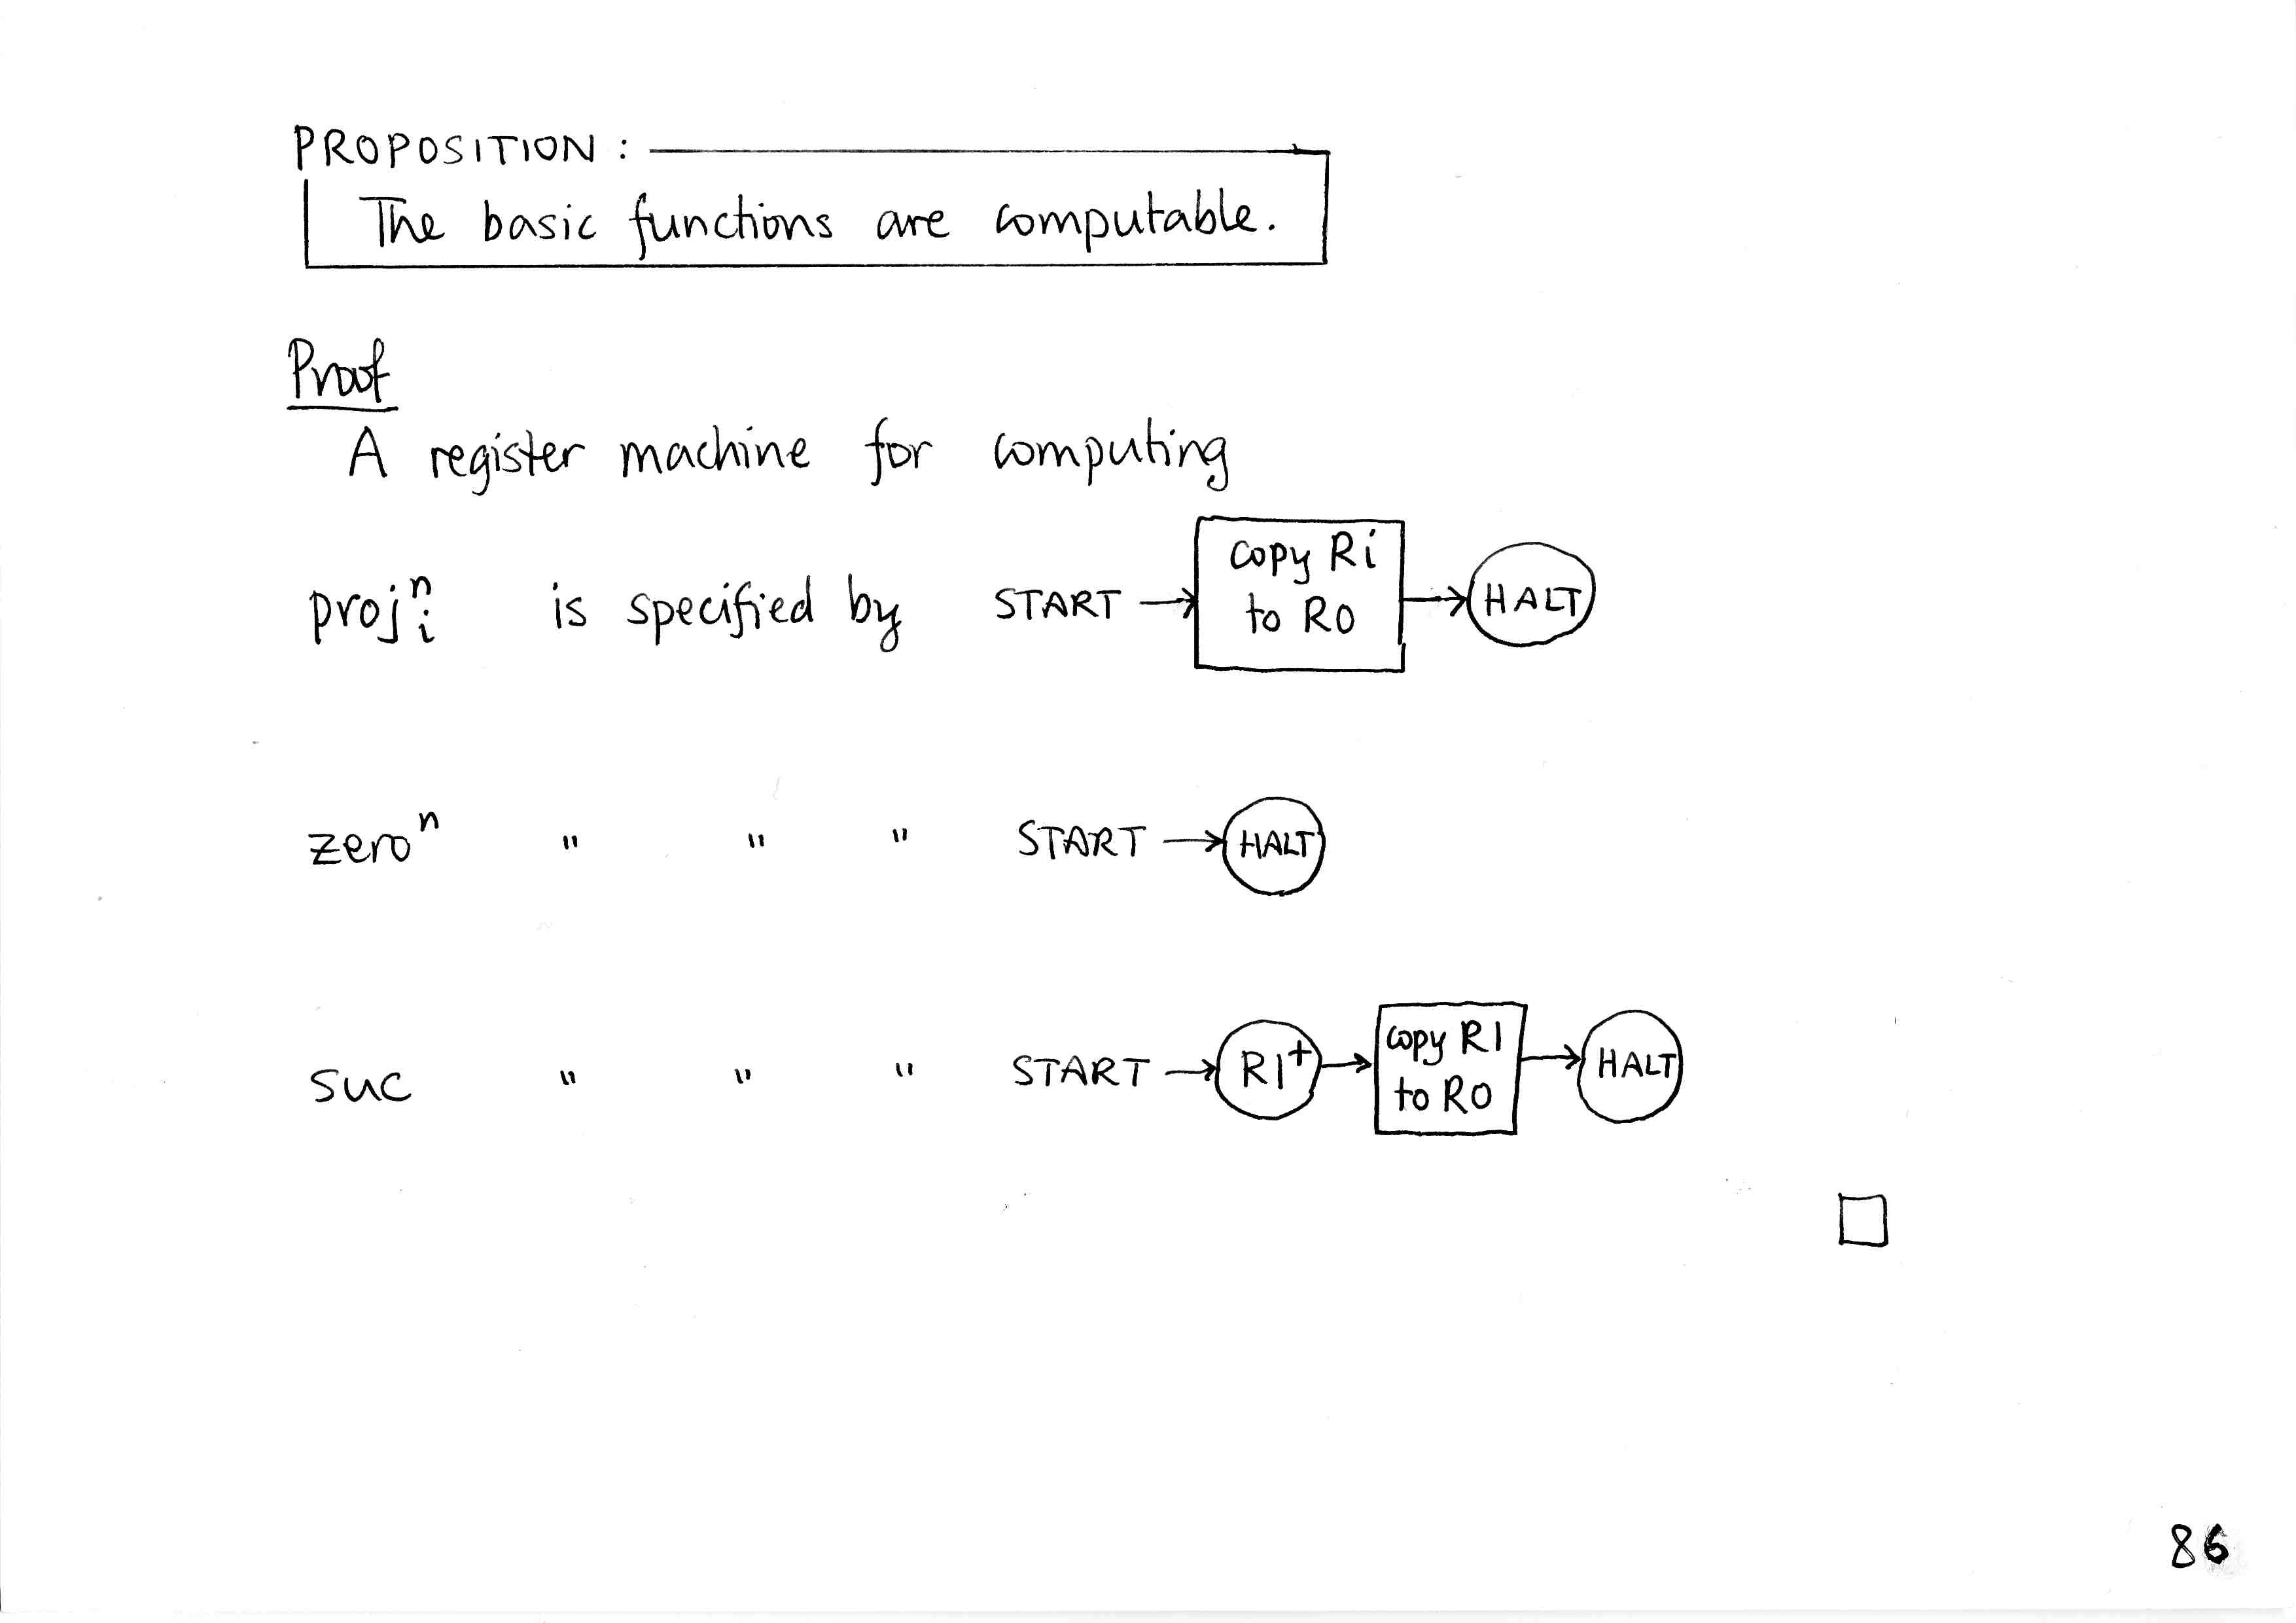 PROPOSITION:
The basic functions are computable.
Proof
A register machine for computing
projⁿᵢ is specified by START → copy Ri to R0 → HALT
zeroⁿ " " " START → HALT
suc " " " START → R1⁺ → copy R1 to R0 → HALT
□
86